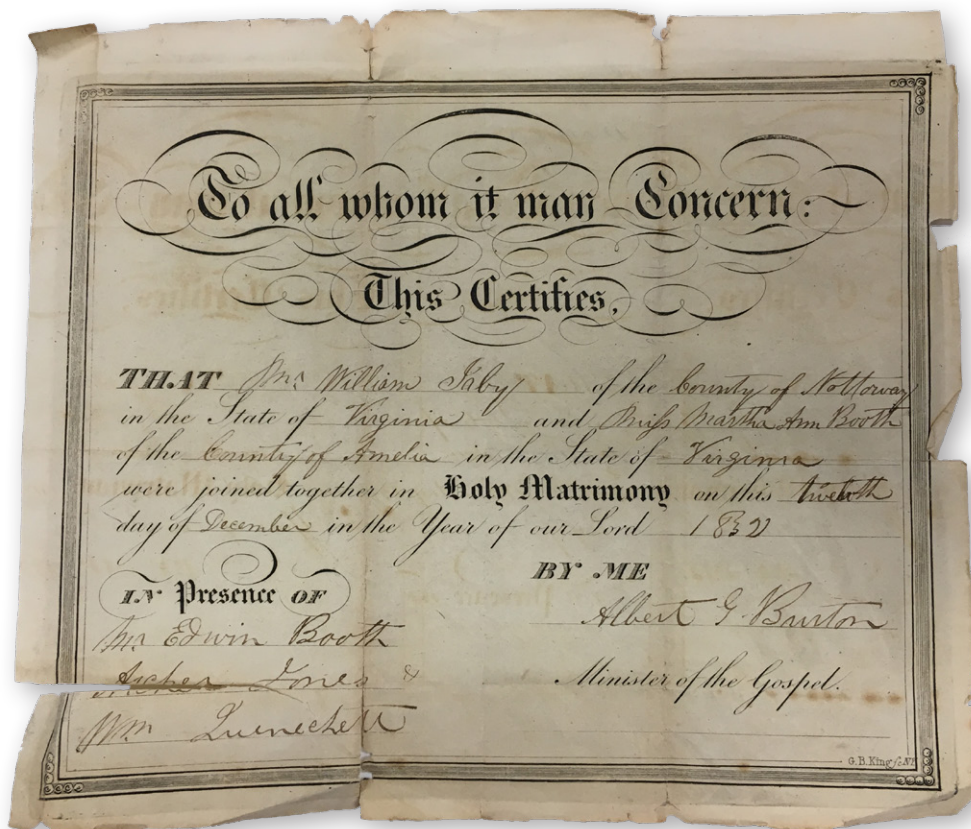 To all whom it may Concern:
This Certifies,
THAT Mr. William Irby of the County of Nottoway
in the State of Virginia and Miss Martha Ann Booth
of the County of Amelia in the State of Virginia
were joined together in Holy Matrimony on this twelvth
day of December in the Year of our Lord
BY ME
IN Presence OF
Albert G. Burton
Mr. Edwin Booth
Archer Jones &
Minister of the Gospel.
Wm Quinechett
G.B.King